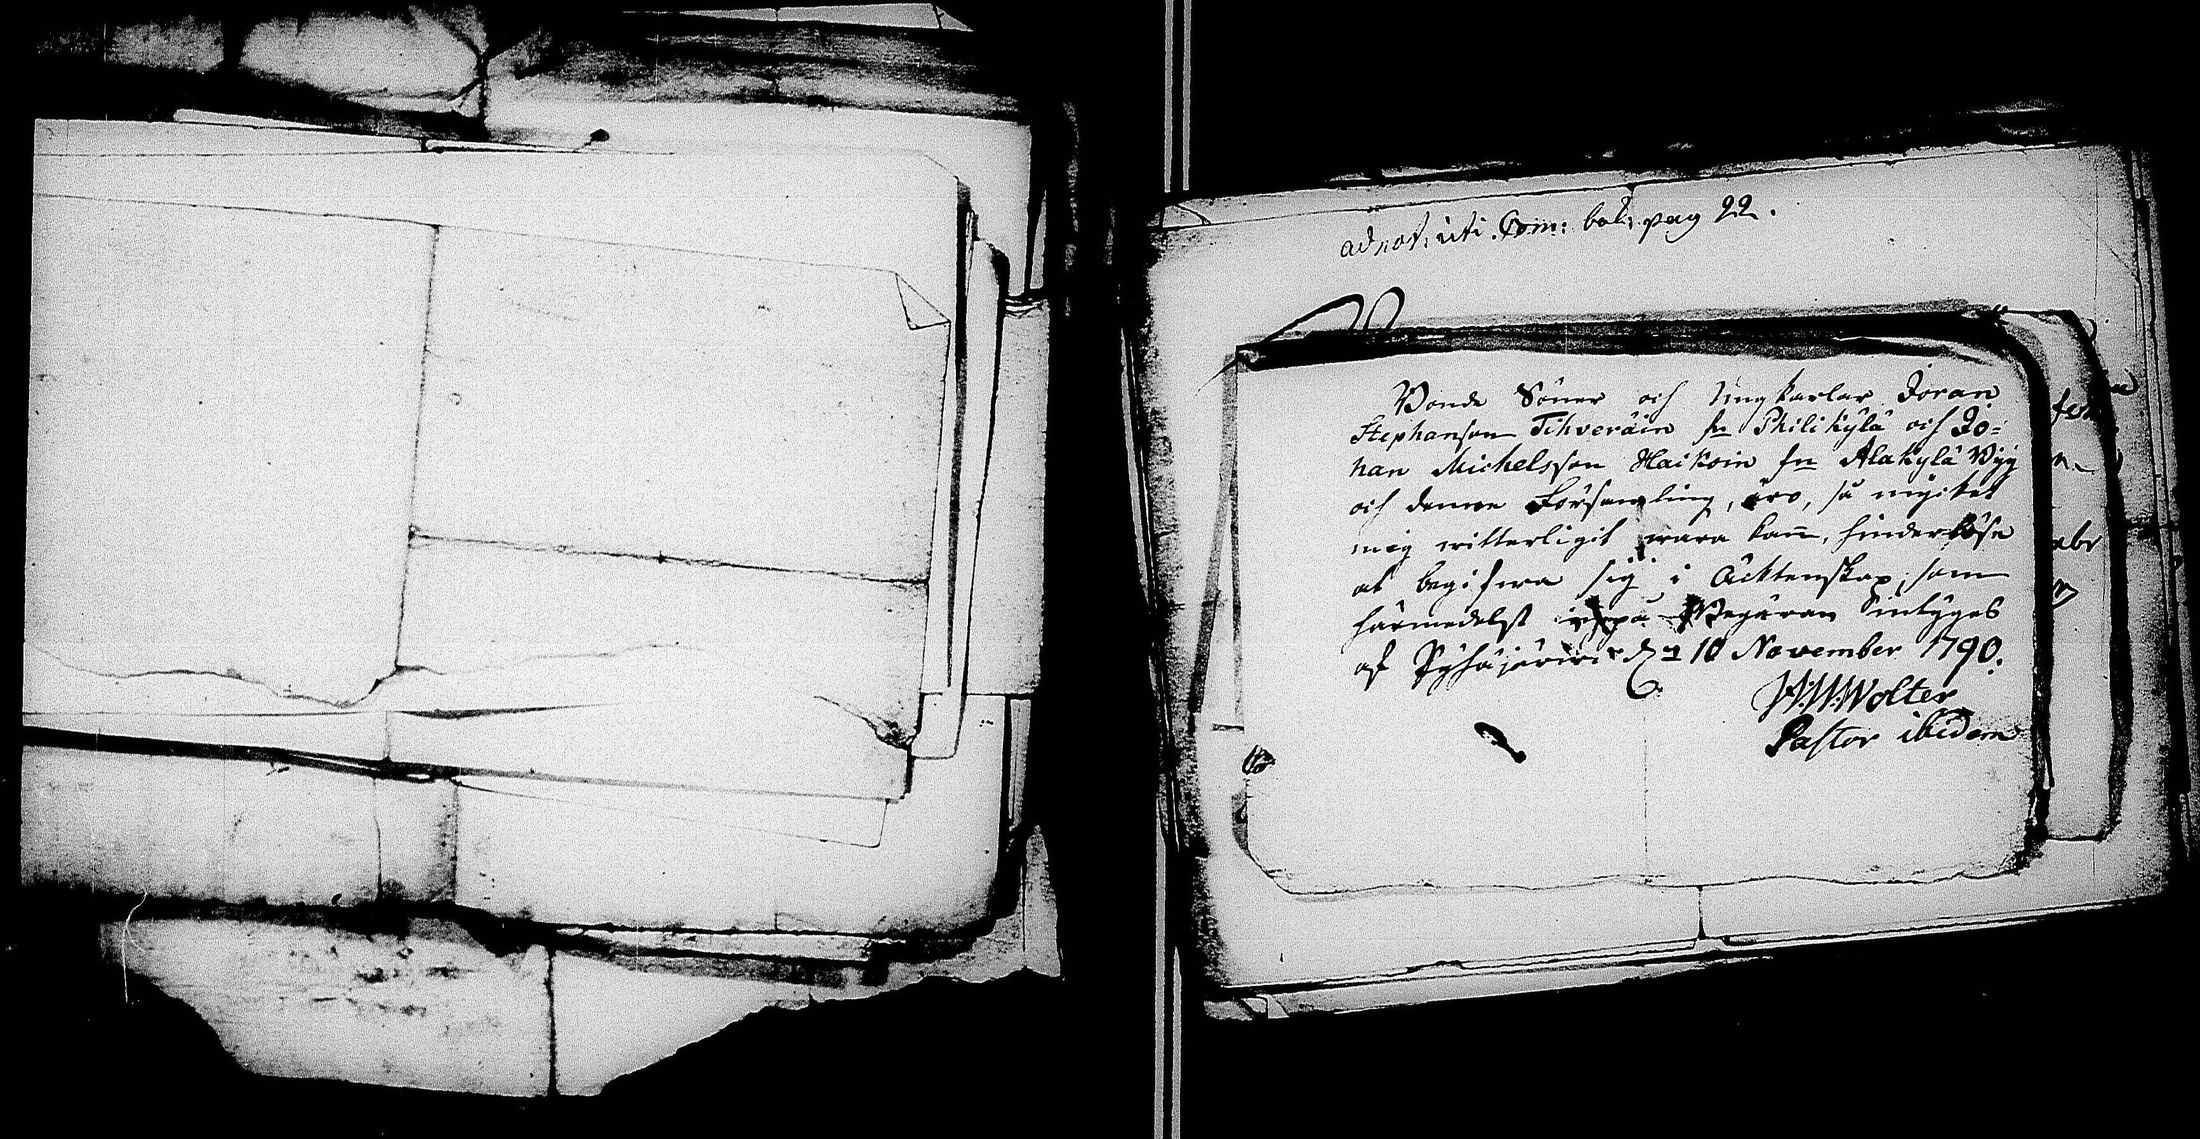 adnot: uti Com: bok: pag 22.
Bonde Söner och Ungkarlar Joran
Stephanson Tihveräin fr Philikylä och Jo=
han Michelsson Haikoin fr Alakylä Byg
och denne Församling, äro, så mycket
mig witterligit wara kan, hinderlöse
at begifwa sig i Äcktenskap, som
härmedelst uppå Begäran Intygas
af Pyhäjärwi d. 10 November 1790.
Wolter
Pastor ibidem